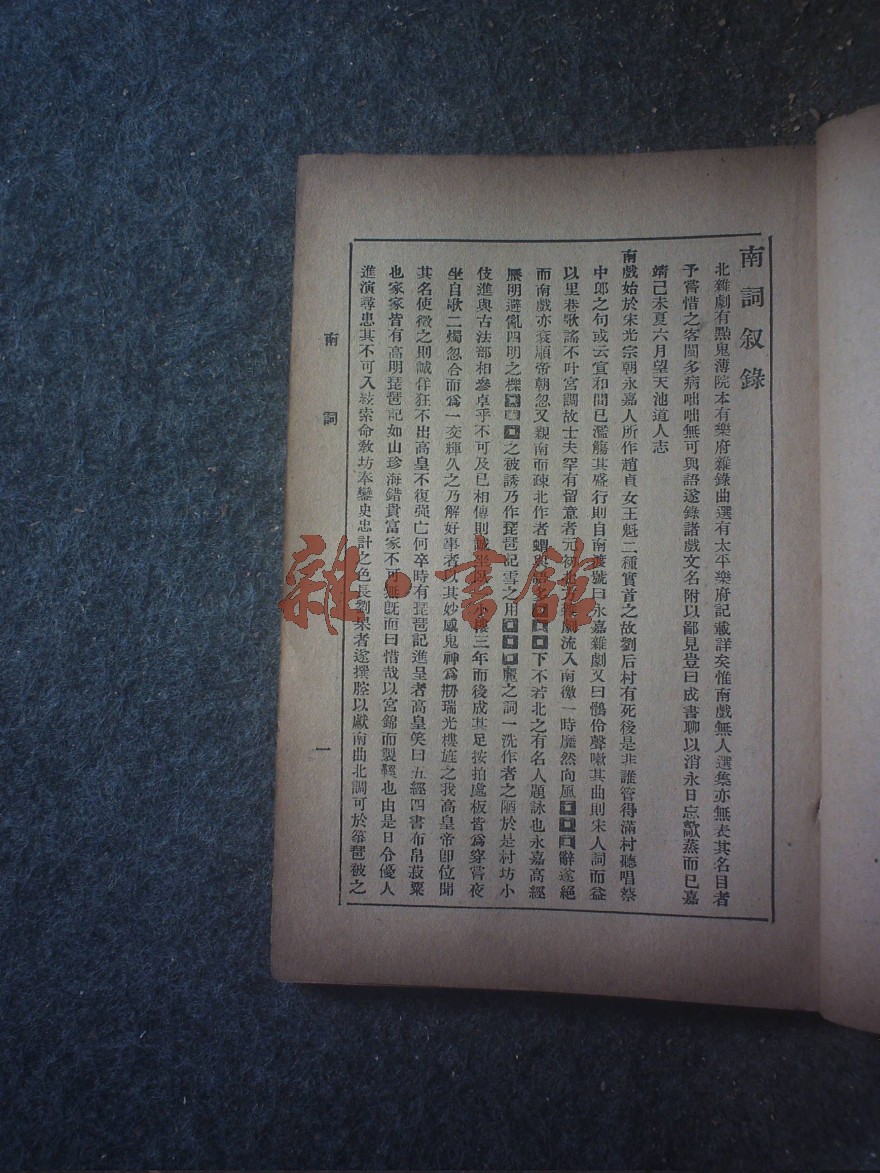 南詞叙錄
北雜劇有點鬼薄院本有樂府雜錄曲選有太平樂府記載詳矣惟南戲無人選集亦無表其名目者
予嘗惜之客閩多病咄咄無可與語遂錄諸戲文名附以鄙見豈曰成書聊以消永日忘歊蒸而已嘉
靖己未夏六月望天池道人志
南戲始於宋光宗朝永嘉人所作趙貞女王魁二種實首之故劉后村有死後是非誰管得滿村聽唱蔡
中郎之句或云宣和間已濫觴其盛行則自南渡號曰永嘉雜劇又曰鶻伶聲嗽其曲則宋人詞而益
以里巷歌謠不叶宮調故士夫罕有留意者元初北方雜劇流入南徼一時靡然向風□□□辭遂絕
而南戲亦衰順帝朝忽又親南而疎北作者蝟興語多□□□下不若北之有名人題詠也永嘉高經
歷明避亂四明之櫟□□□之被誘乃作琵琶記雪之用□□□麗之詞一洗作者之陋於是村坊小
伎進與古法部相參卓乎不可及已相傳則誠坐臥一小樓三年而後成其足按拍處板皆爲穿嘗夜
坐自歌二燭忽合而爲一交輝久之乃解好事者以其妙感鬼神爲刱瑞光樓旌之我高皇帝卽位聞
其名使徵之則誠佯狂不出高皇不復强亡何卒時有琵琶記進呈者高皇笑曰五經四書布帛菽粟
也家家皆有高明琵琶記如山珍海錯貴富家不可無旣而曰惜哉以宮錦而製鞵也由是日令優人
進演尋患其不可入絃索命敎坊奉鑾史忠計之色長劉杲者遂撰腔以獻南曲北調可於箏琶被之
南 詞
一
雜·書館